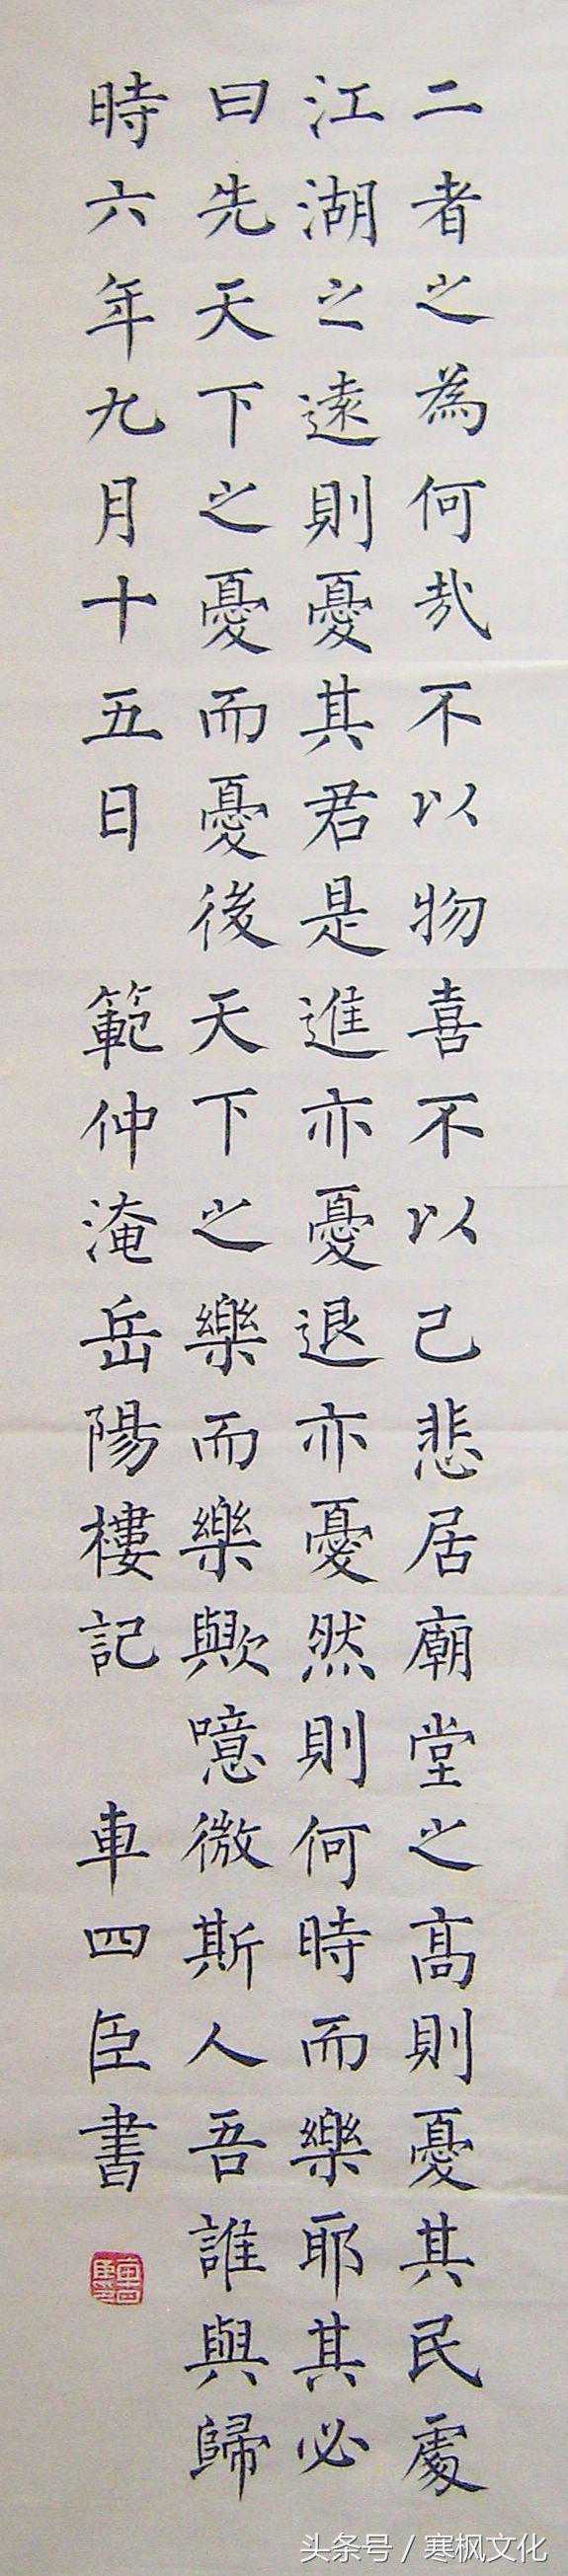 二者之為何哉不以物喜不以己悲居廟堂之高則憂其民處
江湖之遠則憂其君是進亦憂退亦憂然則何時而樂耶其必
曰先天下之憂而憂後天下之樂而樂歟噫微斯人吾誰與歸
時六年九月十五日 範仲淹岳陽樓記 車四臣書
头条号 / 寒枫文化